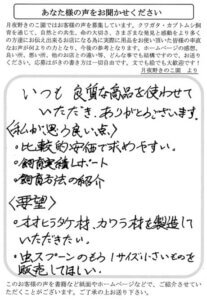 あなた様の声をお聞かせください
月夜野きのこ園ではお客様の声を募集しています。クワガタ・カブトムシ飼
育を通じて、自然との共生、命の大切さ、さまざまな発見と感動をより多く
の方達にお伝え出来るお店になる為に実際に用品をお使い頂いた皆様の率直
なお声が何よりの力となり、今後の参考となります。ホームページの感想、
良い所、悪い所、他のお店との違い等、どんな事でも結構ですので、お送り
ください。応募はがきの書き方は一切自由です。文でも絵でも大歓迎です！
月夜野きのこ園 より
いつも 良質な商品を使わせて
いただき、ありがとうございます。
〈私が思う良い点〉
・比較的安価で求めやすい。
・飼育実績レポート
・飼育方法の紹介
〈要望〉
・オオヒラタケ材、カワラ材を製造して
いただきたい。
・虫スプーンのもう1サイズ小さいものを
販売してほしい。
このお客様の声を書籍など紙面やホームページなどで、ご紹介させてい
ただくことがございます。ご了承の上お送り下さい。